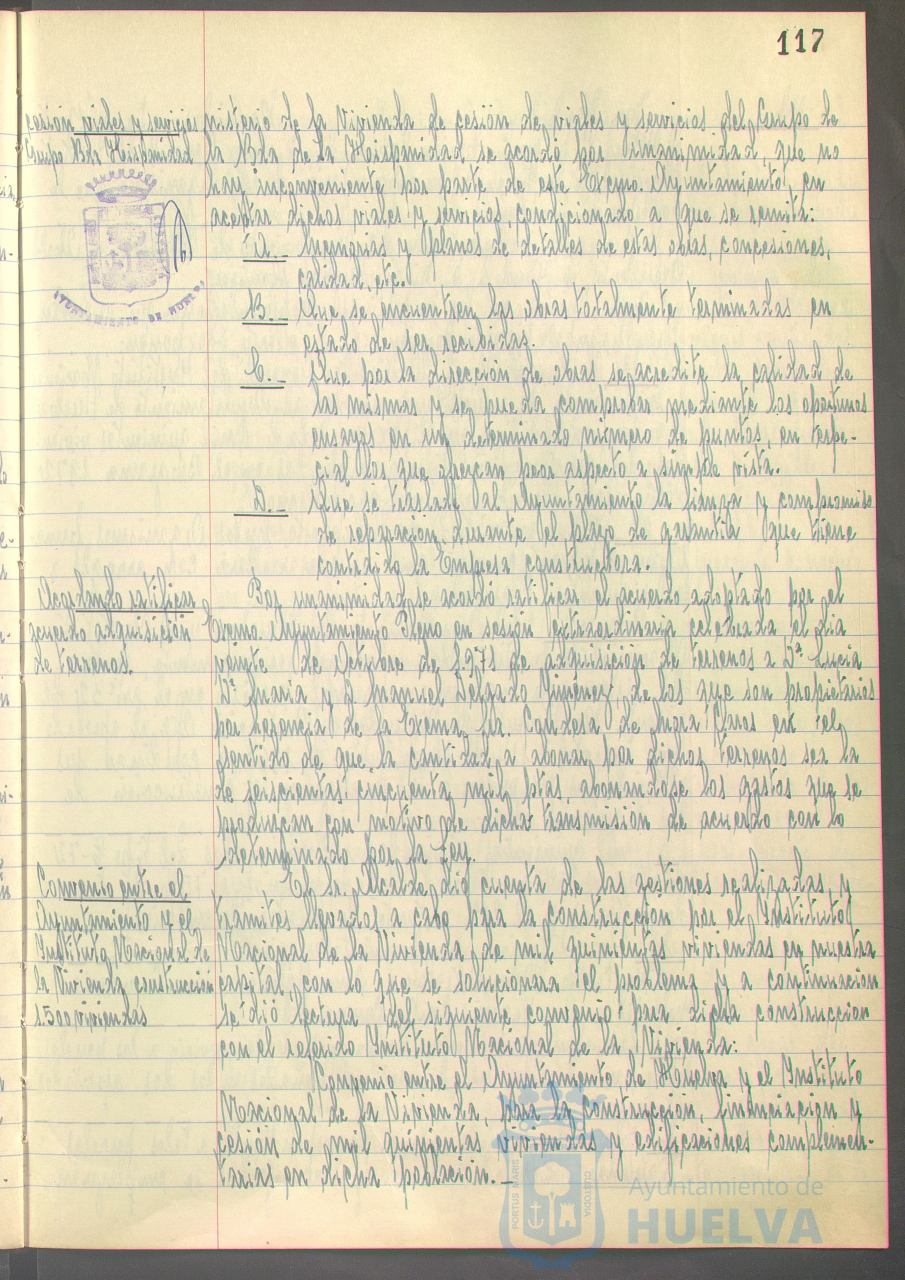 117
cesión viales y servicios
Grupo Bda Hispanidad
AYUNTAMIENTO DE HUELVA
nisterio de la Vivienda de cesión de viales y servicios del Grupo de
la Bda de la Hispanidad se acordó por unanimidad, que no
hay inconveniente por parte de este Excmo. Ayuntamiento, en
aceptar dichos viales y servicios, condicionado a que se remita:
A.- Memorias y planos de detalles de estas obras, concesiones,
calidad, etc.
B.- Que se encuentren las obras totalmente terminadas en
estado de ser recibidas.
C.- Que por la dirección de obras se acredite la calidad de
las mismas y se pueda comprobar mediante los oportunos
ensayos en un determinado número de puntos, en espe-
cial los que ofrezcan peor aspecto a simple vista.
D.- Que se traslade al Ayuntamiento la fianza y compromiso
de reparación durante el plazo de garantía que tiene
contraido la Empresa constructora.
Acordando ratificar
acuerdo adquisición
de terrenos.
Por unanimidad se acordó ratificar el acuerdo adoptado por el
Excmo. Ayuntamiento Pleno en sesión extraordinaria celebrada el dia
veinte de Octubre de 1.971 de adquisición de terrenos a Dª Lucia
Dª Maria y D. Manuel Delgado Jiménez, de los que son propietarios
por herencia de la Excma. Sra. Condesa de Mora Claros en el
sentido de que la cantidad a abonar por dichos terrenos sea la
de seiscientas cincuenta mil ptas, abonandose los gastos que se
produzcan con motivo de dicha transmisión de acuerdo con lo
determinado por la Ley.
Convenio entre el
Ayuntamiento y el
Instituto Nacional de
la Vivienda construcción
1.500 viviendas
El Sr. Alcalde dió cuenta de las gestiones realizadas, y
tramites llevados a cabo para la construcción por el Instituto
Nacional de la Vivienda de mil quinientas viviendas en nuestra
capital, con lo que se solucionara el problema y a continuación
se dió lectura del siguiente convenio para dicha construccion
con el referido Instituto Nacional de la Vivienda:
Convenio entre el Ayuntamiento de Huelva y el Instituto
Nacional de la Vivienda, para la construcción, financiacion y
cesión de mil quinientas viviendas y edificaciones complemen-
tarias en dicha población.-
PORTUS MARIS
CUSTODIA
Ayuntamiento de
HUELVA